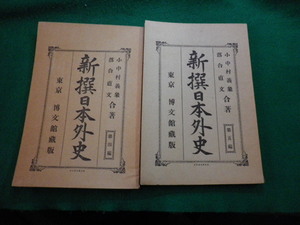 小中村義象
落合直文 合著
新撰日本外史
第四編
東京 博文館蔵版
小中村義象
落合直文 合著
新撰日本外史
第五編
東京 博文館蔵版